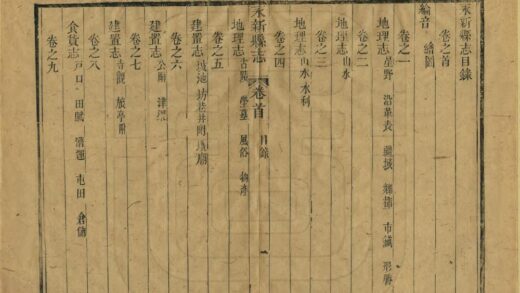 永新縣志目錄
卷之首
繪圖
卷之一
地理志 星野 沿革表 疆域 市鎮 形勝
卷之二
地理志 山水
卷之三
地理志 山水 水利
卷之四
永新縣志 卷首 目錄
地理志 古蹟 塋墓 風俗 物產
卷之五
建置志 城池 坊巷 井
卷之六
建置志 公廨 津梁
卷之七
建置志 寺觀
卷之八
食貨志 戶口 田賦 漕運 屯田 倉儲
卷之九